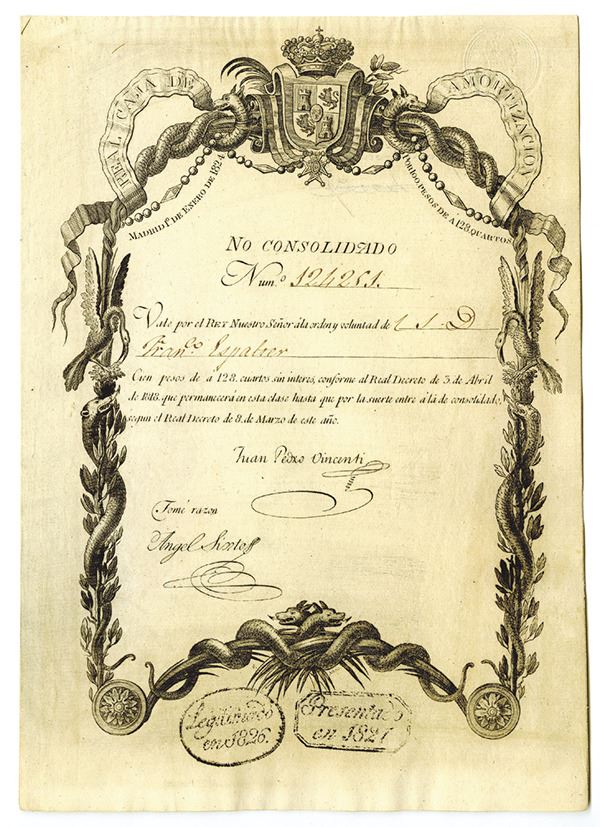 REAL CAJA DE
AMORTIZACION
MADRID 1º. DE ENERO DE 1824
POR 100 PESOS DE Á 128 QUARTOS
NO CONSOLIDADO
Num.º 124251.
Vale por el REY Nuestro Señor á la orden y voluntad de
Fran.co Espalter
Cien pesos de á 128. cuartos sin interes, conforme al Real Decreto de 3. de Abril
de 1818. que permanecerá en esta clase hasta que por la suerte entre á la de consolidado,
segun el Real Decreto de 8. de Marzo de este año.
Juan Pedro Vincenti
Tomé razon
Angel
Legitimado
en 1826.
Presentado
en 1821